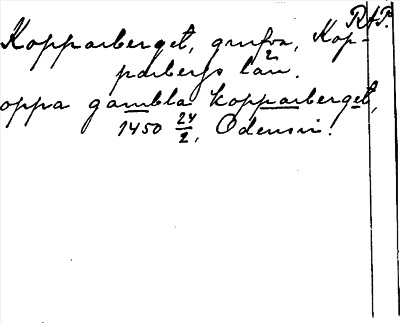 RAP.
Kopparberget, grufva, Kop-
parbergs län.
oppa gambla kopparberget,
1450 24/2, Odensvi.